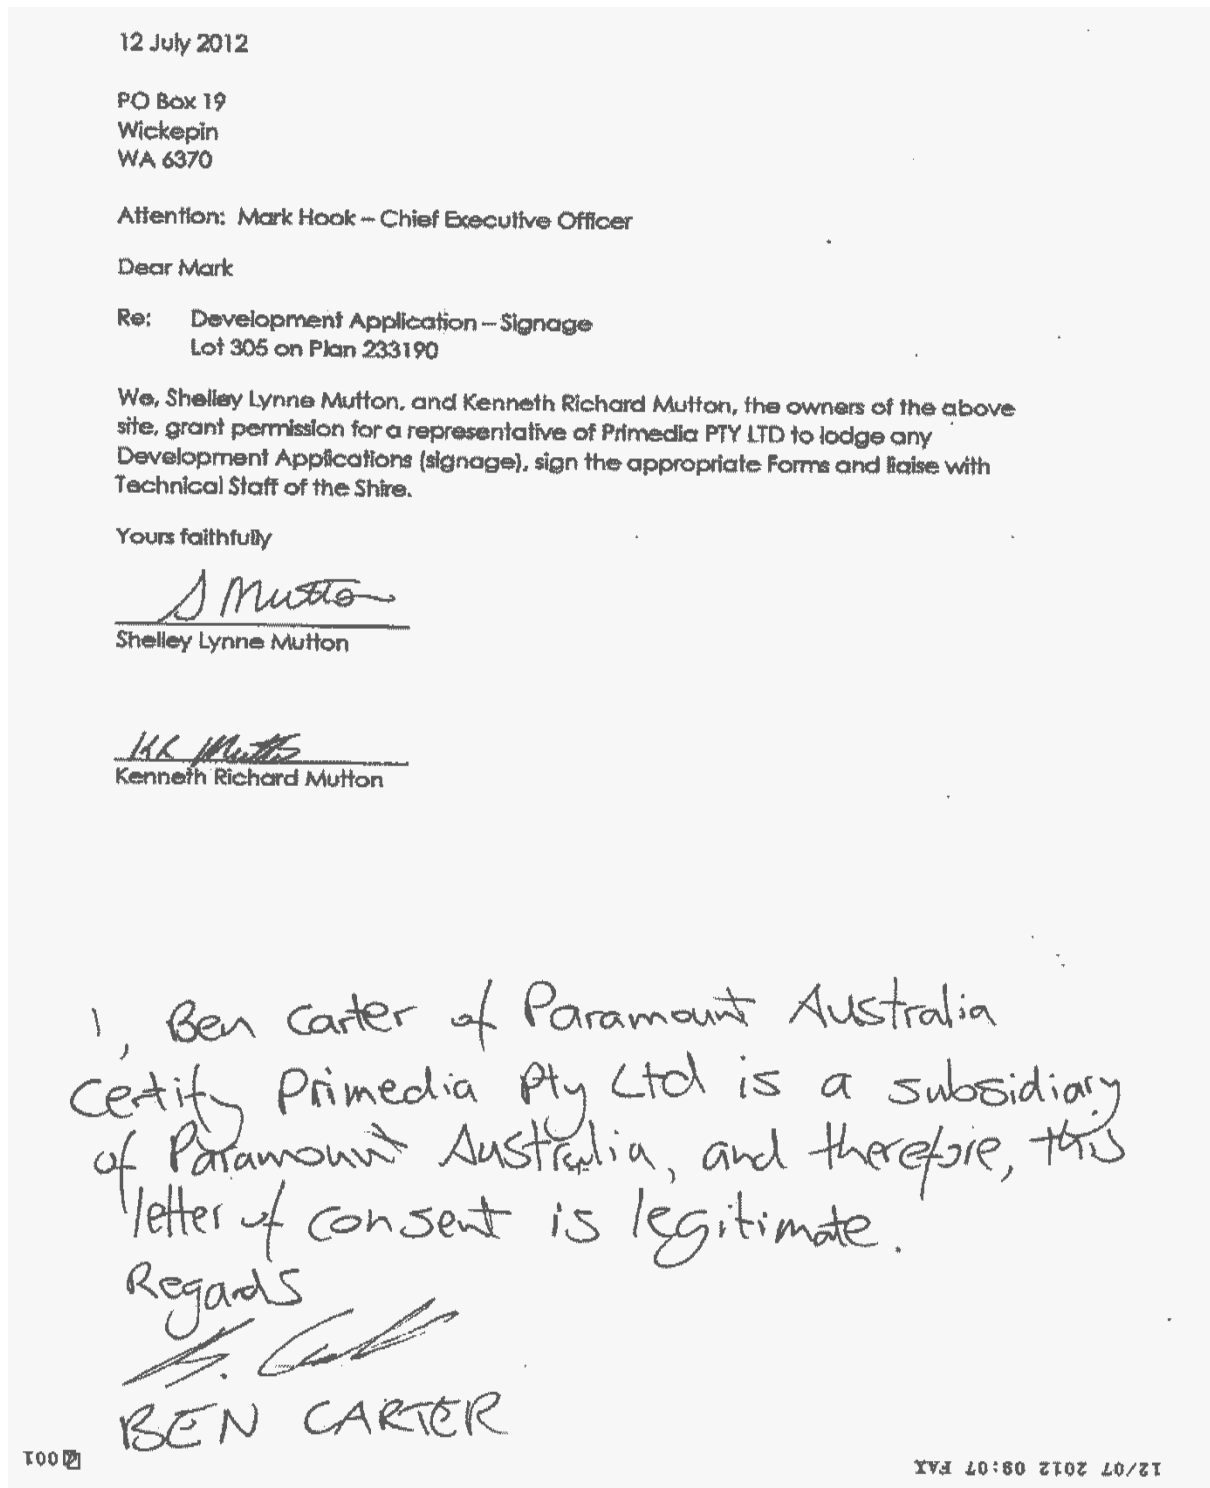 12 July 2012
PO Box 19
Wickepin
WA 6370
Attention: Mark Hook – Chief Executive Officer
Dear Mark
Re: Development Application – Signage
Lot 305 on Plan 233190
We, Shelley Lynne Mutton, and Kenneth Richard Mutton, the owners of the above
site, grant permission for a representative of Primedia PTY LTD to lodge any
Development Applications (signage), sign the appropriate Forms and liaise with
Technical Staff of the Shire.
Yours faithfully
S Mutton
Shelley Lynne Mutton
KR Mutton
Kenneth Richard Mutton
I, Ben Carter of Paramount Australia
certify Primedia Pty Ltd is a subsidiary
of Paramount Australia, and therefore, this
letter of consent is legitimate.
Regards
BEN CARTER
12/07 2012 09:07 FAX
001